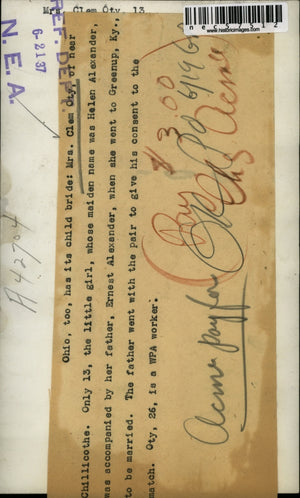 Mrs. Clem Oty, 13
REF. DEPT.
6-21-37
N. E. A.
nec52312
www.historicimages.com
Ohio, too, has its child bride: Mrs. Clem Oty, of near
Chillicothe. Only 13, the little girl, whose maiden name was Helen Alexander,
was accompanied by her father, Ernest Alexander, when she went to Greenup, Ky.,
to be married. The father went with the pair to give his consent to the
match. Oty, 26, is a WPA worker.
$3.00
Pay
Acme
Acme pay for